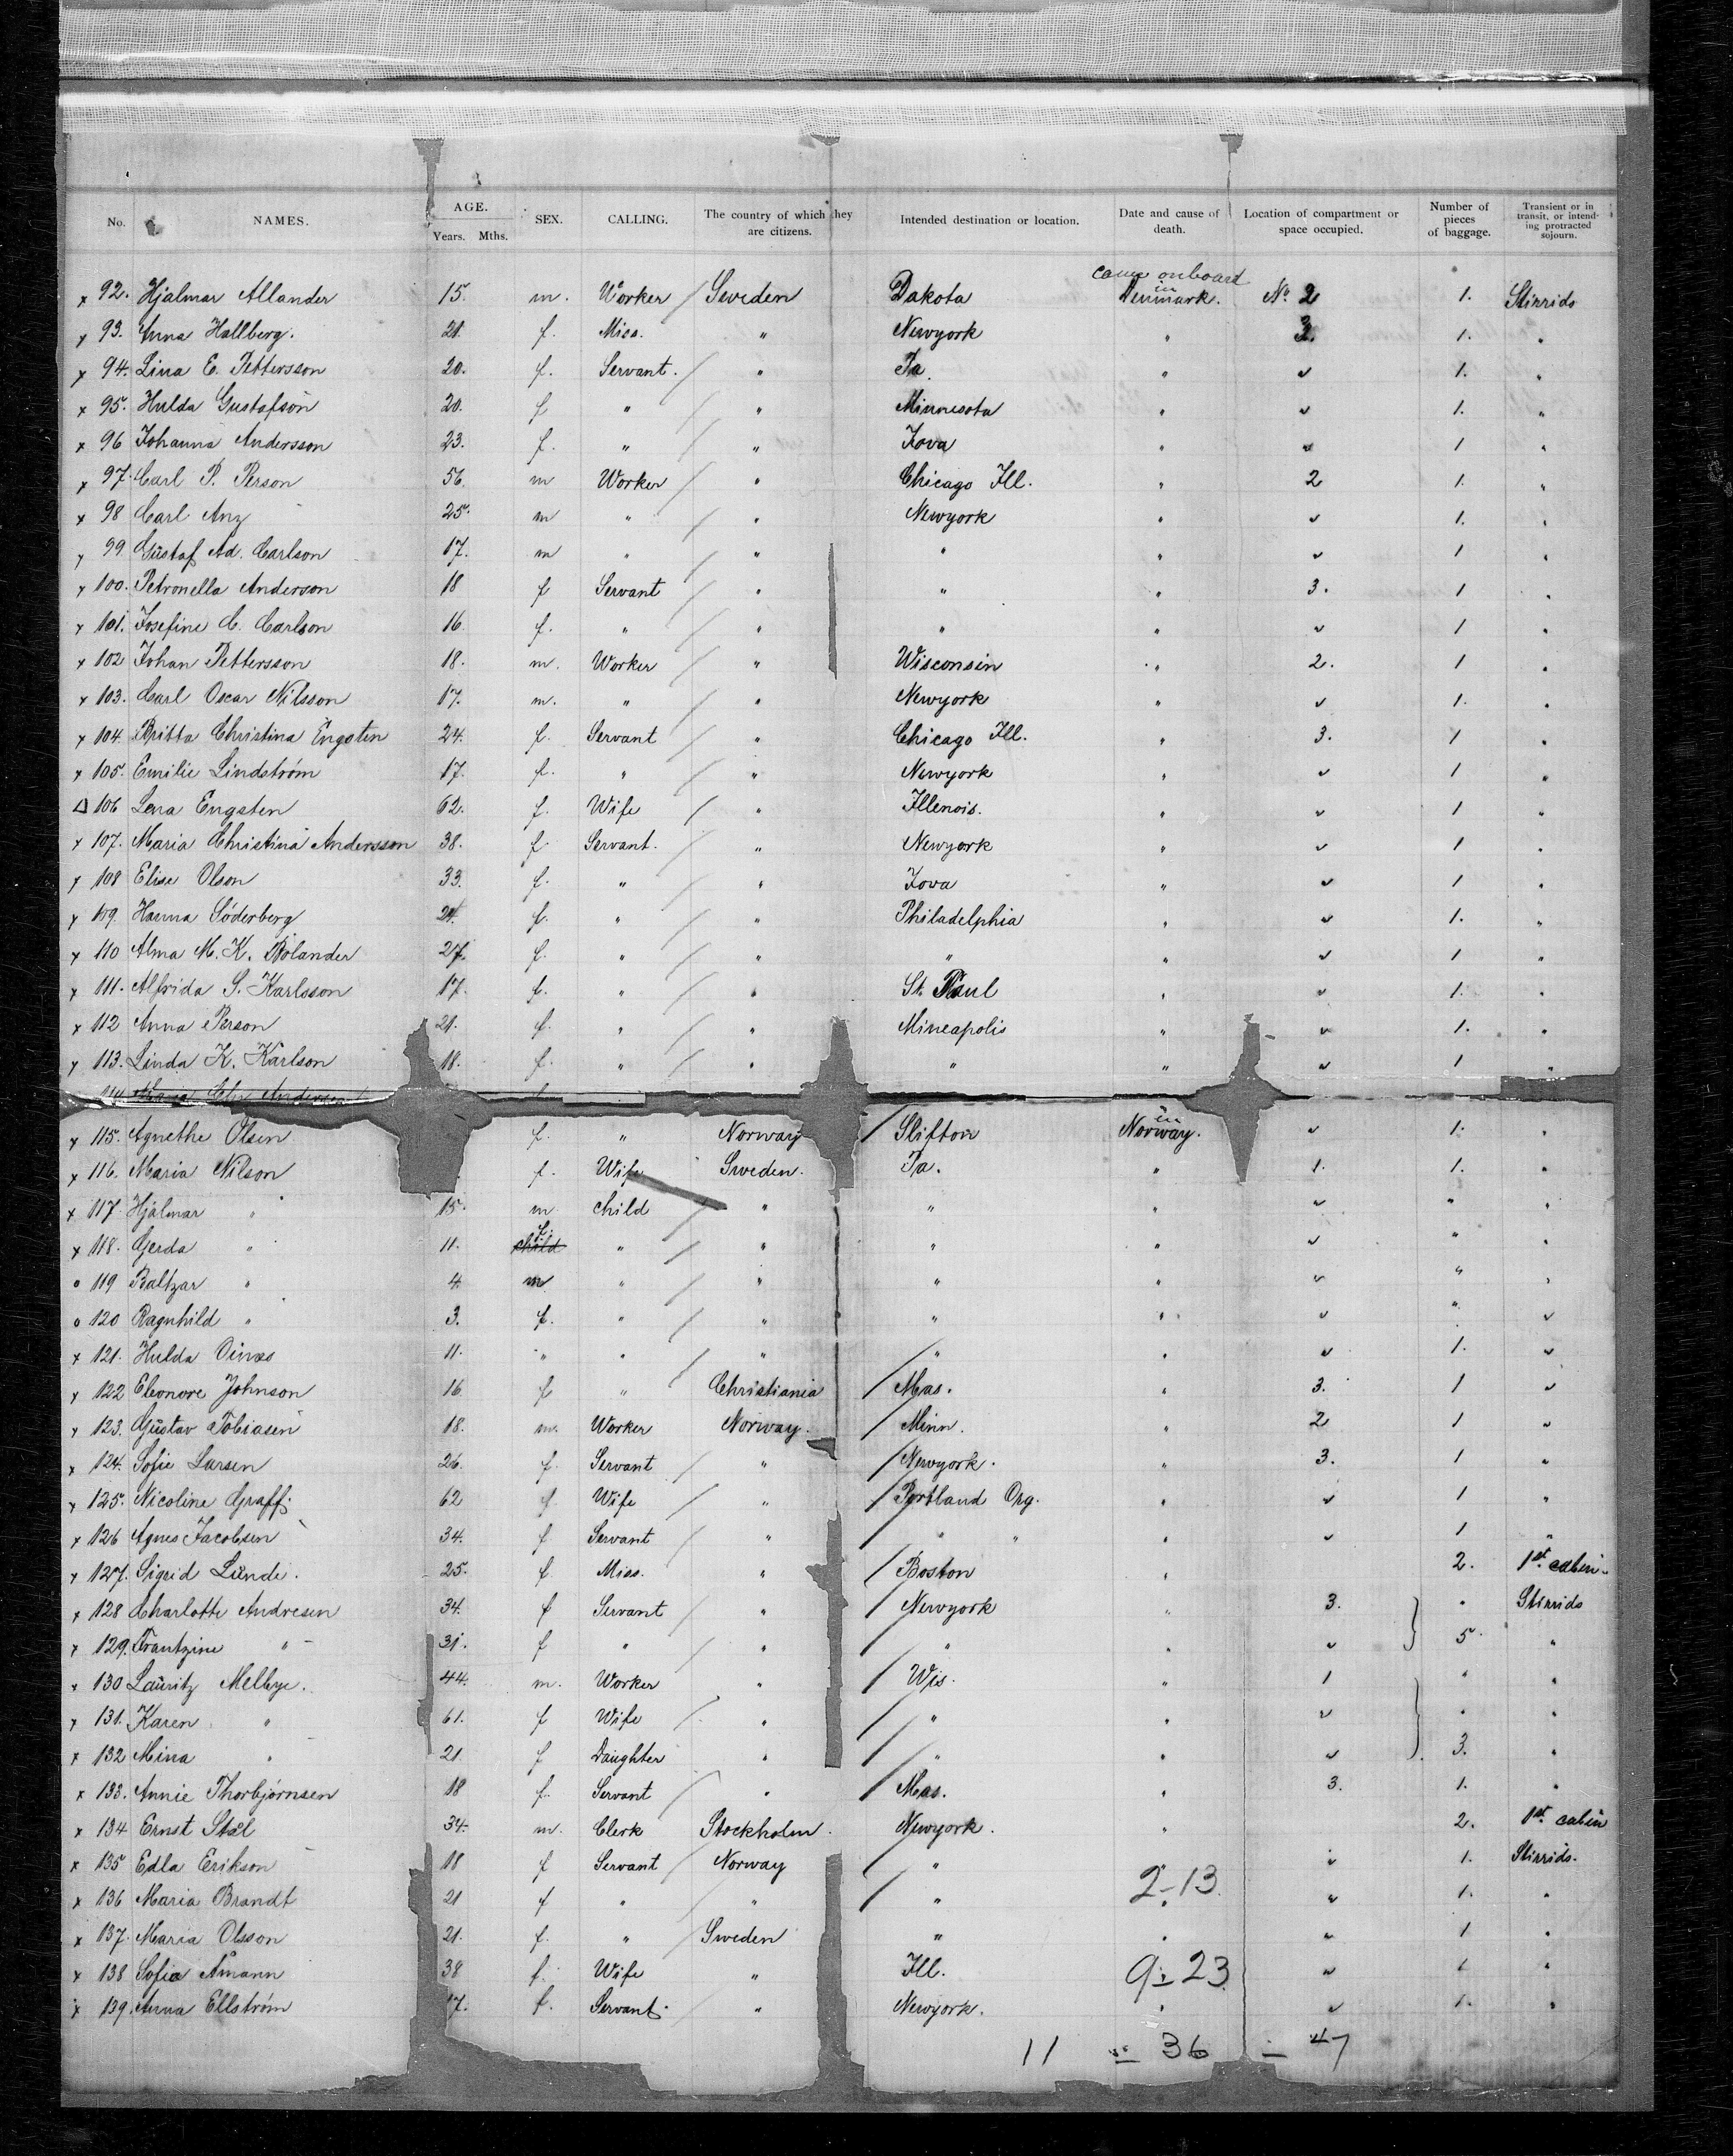 No. NAMES. AGE. Years. Mths. SEX. CALLING. The country of which they are citizens. Intended destination or location. Date and cause of death. Location of compartment or space occupied. Number of pieces of baggage. Transient or in transit, or intending protracted sojourn.
came onboard
x 92. Hjalmar Allander 15. m. Worker / Sweden Dakota in Denmark. No. 2 1. Stirrids
x 93. Anna Hallberg. 21. f. Miss. " Newyork " 3. 1. "
x 94. Lina E. Pettersson 20. f. Servant. / " Pa. " " 1. "
x 95. Hulda Gustafson 20. f " / " Minnesota " " 1. "
x 96 Johanna Andersson 23. f. " / " Iova " " 1 "
x 97. Carl P. Person 56. m Worker / " Chicago Ill. " 2 1. "
x 98 Carl Any 25. m " / " Newyork " " 1. "
x 99 Gustaf Ad. Carlson 17. m " / " " " " 1 "
x 100. Petronella Anderson 18 f Servant / " " " 3. 1 "
x 101. Josefine C. Carlson 16. f. " / " " " " 1 "
x 102 Johan Pettersson 18. m. Worker / " Wisconsin " 2. 1 "
x 103. Carl Oscar Nilsson 17. m. " / " Newyork " " 1. "
x 104. Britta Christina Engsten 24. f. Servant / " Chicago Ill. " 3. 1 "
x 105. Emilie Lindström 17. f. " / " Newyork " " 1 "
Δ 106 Lena Engsten 62. f. Wife / " Illenois. " " 1 "
x 107. Maria Christina Andersson 38. f Servant. / " Newyork " " 1 "
x 108 Elise Olson 33. f. " / " Iova " " 1 "
x 109. Hanna Söderberg 24. f. " / " Philadelphia " " 1. "
x 110 Alma M. K. Bolander 27. f. " / " " " " 1 "
x 111. Alfrida S. Karlsson 17. f. " / " St. Paul " " 1. "
x 112 Anna Person 21. f. " / " Mineapolis " " 1. "
x 113. Linda K. Karlson 18. f. " / " " " " 1 "
114 Chr. Andersen
x 115. Agnethe Olsen f. " Norway / Slifton in Norway. " 1. "
x 116. Maria Nilson f. Wife Sweden. Pa. " 1. 1. "
x 117. Hjalmar " 15. m child / " " " " " "
x 118. Gerda " 11. child f. " / " " " " " "
o 119 Baltzar " 4 m " / " " " " " "
o 120 Ragnhild " 3. f. " / " " " " " "
x 121. Hulda 11. " " / " / " " " 1. "
x 122 Eleonore Johnson 16 f " Christiania / Mas. " 3. 1 "
x 123. Gustav Tobiasen 18. m. Worker Norway. / Minn. " 2 1 "
x 124. Sofie Larsen 26. f. Servant / " / Newyork. " 3. 1 "
x 125. Nicoline Graff. 62 f Wife / " / Portland Org. " " 1 "
x 126 Agnes Jacobsen 34. f Servant / " / " " " " 1 "
x 127. Sigrid Lunde. 25. f. Miss. " / Boston " 2. 1st cabin.
x 128 Charlotte Andresen 34. f Servant / " / Newyork " 3. } " Stirrids
x 129. Frantzine " 31. f " / " / " " " 5. "
x 130 Lauritz Melbye. 44. m. Worker " / Wis. " 1 } " "
x 131. Karen " 61. f Wife / " / " " " " "
x 132 Mina " 21 f Daughter " / " " " 3. "
x 133. Annie Thorbjørnsen 18 f. Servant / " / Mas. " 3. 1. "
x 134 Ernst Stæl 34. m. Clerk Stockholm. Newyork. " 2. 1st cabin
x 135 Edla Erikson 18 f Servant / Norway / " " " 1. Stirrids.
x 136 Maria Brandt 21 f " / " / " " " 1. "
2-13
x 137. Maria Olsson 21. f. " / Sweden " " " 1 "
x 138 Sofia Åmann 38 f. Wife " Ill. " 1 "
9-23
x 139. Anna Ellström 17. f. Servant. " Newyork. " " 1. "
11 - 36 - 47